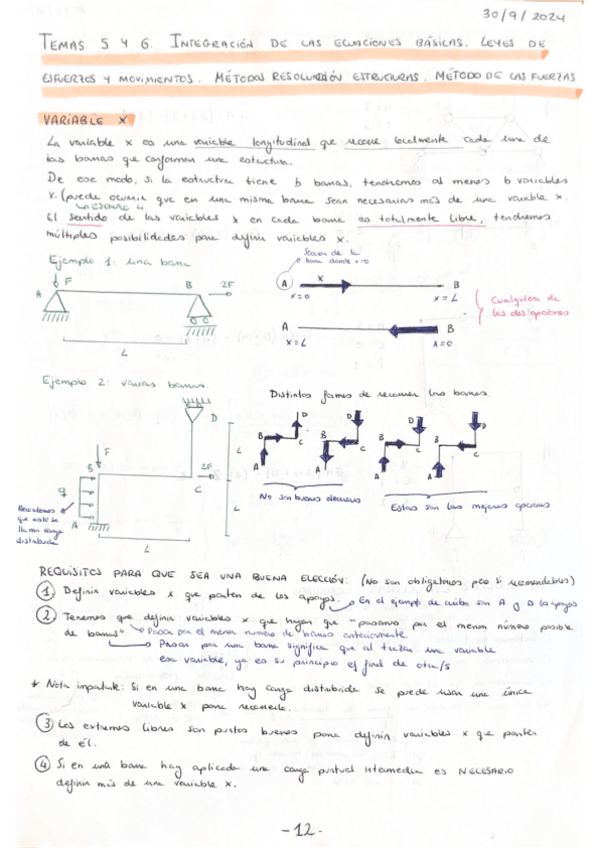 30/9/2024
TEMAS 5 Y 6. INTEGRACIÓN DE LAS ECUACIONES BÁSICAS. LEYES DE
ESFUERZOS Y MOVIMIENTOS. MÉTODOS RESOLUCIÓN ESTRUCTURAS. MÉTODO DE LAS FUERZAS
VARIABLE X
La variable x es una variable longitudinal que recorre localmente cada una de
las barras que conforman una estructura.
De ese modo, si la estructura tiene b barras, tendremos al menos b variables
x. (puede ocurrir que en una misma barra sean necesarias más de una variable x.
El sentido de las variables x en cada barra es totalmente libre, tendremos
múltiples posibilidades para definir variables x.
Ejemplo 1: una barra
Sección de la
barra donde x=0
F
A
B
2F
L
A
x
B
x=0
x=L
A
B
x=L
x=0
Cualquiera de
las dos opciones
Ejemplo 2: varias barras.
Distintas formas de recorrer las barras.
D
F
B
2F
C
q
A
L
L
L
Recordemos
que esto se
llama carga
distribuida
A
B
C
D
A
B
C
D
A
B
C
D
A
B
C
D
No son buenas elecciones
Estas son las mejores opciones
REQUISITOS PARA QUE SEA UNA BUENA ELECCIÓN: (No son obligatorios pero si recomendables)
1 Definir variables x que parten de los apoyos. En el ejemplo de arriba son A y D los apoyos
2 Tenemos que definir variables x que hagan que "pasamos por el menor número posible
de barras" Pasar por el menor número de barras anteriormente
Pasar por una barra significa que al trazar una variable
esa variable, ya es su principio el final de otra/s
* Nota importante: Si en una barra hay carga distribuida se puede usar una única
variable x para recorrerla.
3 Los extremos libres son puntos buenos para definir variables x que parten
de él.
4 Si en una barra hay aplicada una carga puntual intermedia es NECESARIO
definir más de una variable x.
-12-